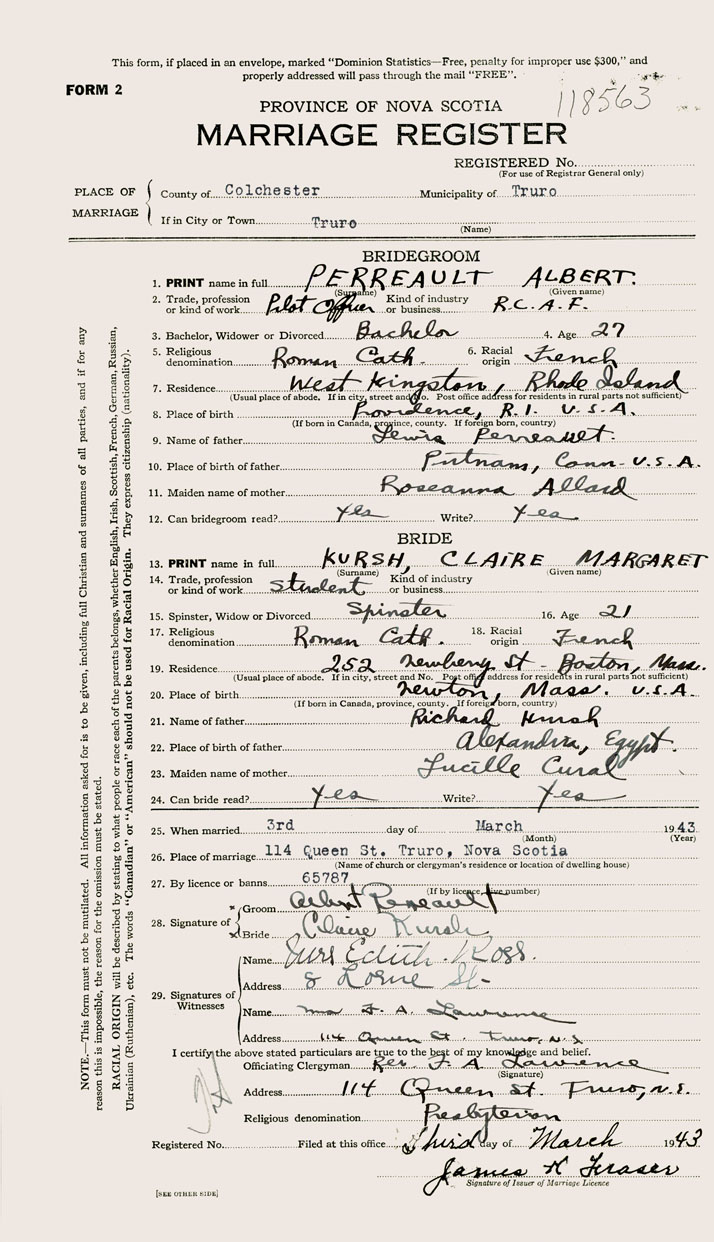 This form, if placed in an envelope, marked "Dominion Statistics—Free, penalty for improper use $300," and
properly addressed will pass through the mail "FREE".
FORM 2
118563
PROVINCE OF NOVA SCOTIA
MARRIAGE REGISTER
REGISTERED No.
(For use of Registrar General only)
PLACE OF MARRIAGE
County of Colchester Municipality of Truro
If in City or Town Truro
(Name)
BRIDEGROOM
1. PRINT name in full PERREAULT ALBERT.
(Surname) (Given name)
2. Trade, profession or kind of work Pilot Officer Kind of industry or business R.C.A.F.
3. Bachelor, Widower or Divorced Bachelor 4. Age 27
5. Religious denomination Roman Cath. 6. Racial origin French
7. Residence West Kingston, Rhode Island
(Usual place of abode. If in city, street and No. Post office address for residents in rural parts not sufficient)
8. Place of birth Providence, R.I. U.S.A.
(If born in Canada, province, county. If foreign born, country)
9. Name of father Lewis Perreault.
10. Place of birth of father Putnam, Conn- U.S.A.
11. Maiden name of mother Roseanna Allard
12. Can bridegroom read? Yes Write? Yes
BRIDE
13. PRINT name in full KURSH, CLAIRE MARGARET
(Surname) (Given name)
14. Trade, profession or kind of work Student Kind of industry or business
15. Spinster, Widow or Divorced Spinster 16. Age 21
17. Religious denomination Roman Cath. 18. Racial origin French
19. Residence 252 Newberry St- Boston, Mass.
(Usual place of abode. If in city, street and No. Post office address for residents in rural parts not sufficient)
20. Place of birth Newton, Mass. U.S.A.
(If born in Canada, province, county. If foreign born, country)
21. Name of father Richard Kursh
22. Place of birth of father Alexandria, Egypt.
23. Maiden name of mother Lucille Cural
24. Can bride read? Yes Write? Yes
25. When married 3rd day of March 1943
(Month) (Year)
26. Place of marriage 114 Queen St. Truro, Nova Scotia
(Name of church or clergyman's residence or location of dwelling house)
27. By licence or banns 65787
(If by licence, give number)
28. Signature of
x Groom Albert Perreault
x Bride Claire Kursh
29. Signatures of Witnesses
Name Mrs Edith Ross.
Address 8 Lorne St-
Name Mrs F. A. Lawrence
Address 114 Queen St. Truro, N.S
I certify the above stated particulars are true to the best of my knowledge and belief.
Officiating Clergyman Rev. F. A Lawrence
(Signature)
Address 114 Queen St. Truro, N.S.
Religious denomination Presbyterian
Registered No. Filed at this office Third day of March 1943
James K Fraser
Signature of Issuer of Marriage Licence
[SEE OTHER SIDE]
NOTE.—This form must not be mutilated. All information asked for is to be given, including full Christian and surnames of all parties, and if for any
reason this is impossible, the reason for the omission must be stated.
RACIAL ORIGIN will be described by stating to what people or race each of the parents belongs, whether English, Irish, Scottish, French, German, Russian,
Ukrainian (Ruthenian), etc. The words "Canadian" or "American" should not be used for Racial Origin. They express citizenship (nationality).